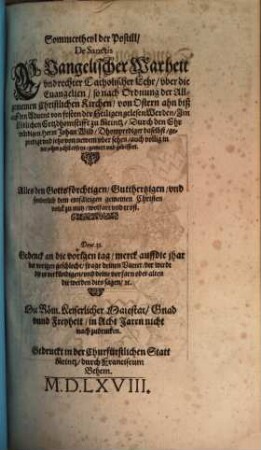 Sommertheyl der Postill/
De Sanctis
EVangelischer Warheit
vnd rechter Catholischer Lehr/ vber die
Euangelien/ so nach Ordnung der All-
gemeinen Christlichen Kirchen/ von Ostern ahn biß
auff den Aduent von festen der Heiligen gelesen Werden/ Im
Löblichen Ertzthumbstifft zu Meintz/ Durch den Ehr-
würdigen Herrn Johan Wild/ Thumprediger daselbst/ ge-
prediget vnd jetzo von newem vber sehen/ auch
Allen den Gottsförchtigen/ Gutthertzigen/ vnd
sonderlich dem einfältigen gemeinen Christen
Deu. 32.
Gedenck an die vorigen tag/ merck auff die jhar
frage deinen Vatter/ der wirdt
dirs verkündigen/
die werden dirs sagen/ etc.
Mit Röm. Keyserlicher Maiestat/ Gnad
vnnd Freyheit/ in Acht Jaren nicht
nach zudrucken.
Gedruckt in der Churfürstlichen Statt
Meintz/ durch Franciscum
Behem.
M.D.LXVIII.